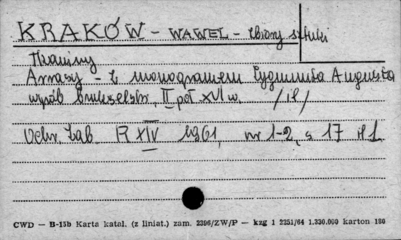 KRAKÓW - WAWEL - Zbiory sztuki
Tkaniny
Arrasy - z monogramem Zygmunta Augusta
wyrób brukselski, II poł XVI w. /il/
Ochr. Zab. R XIV 1961, nr 1-2, s 17 il 1
CWD — B-15b Karta katal. (z liniat.) zam. 2396/ZW/P — kzg 1 2251/64 1.330.000 karton 180